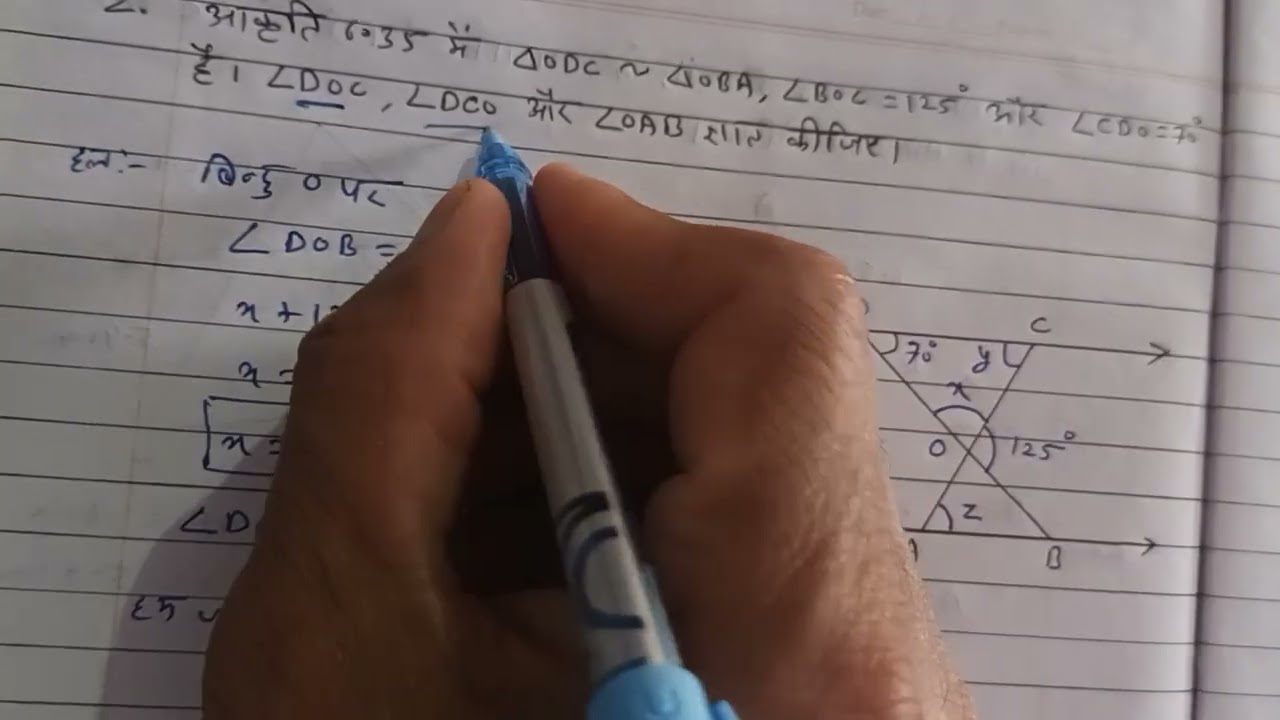 2. आकृति 6.35 में ΔODC ~ ΔOBA, ∠BOC = 125° और ∠CDO = 70°
है। ∠DOC, ∠DCO और ∠OAB ज्ञात कीजिए।
हल:- बिन्दु O पर
∠DOB =
x + 1
x =
x =
∠D
C
70° y
x
O 125°
z
A B